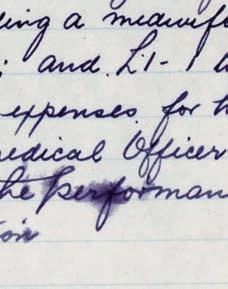 ding a midwife
; and £1-1
expenses for
edical Officer
he performan
ion